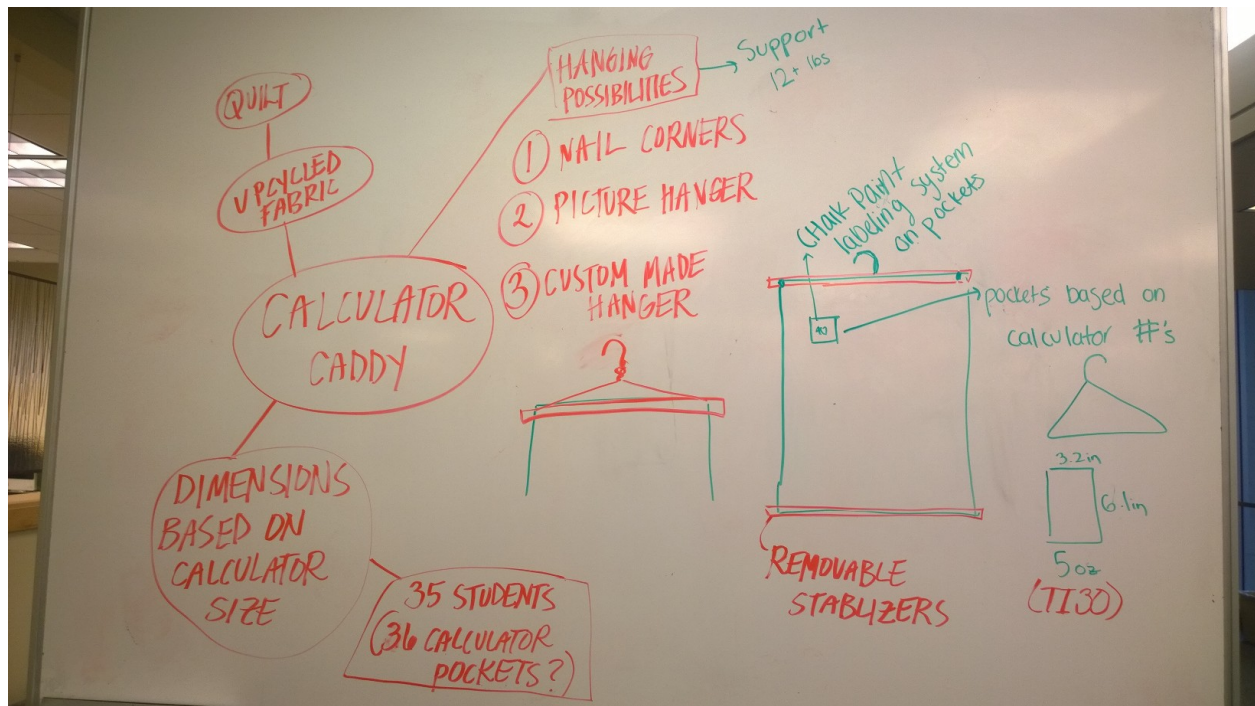 QUILT
UPCYCLED
FABRIC
CALCULATOR
CADDY
DIMENSIONS
BASED ON
CALCULATOR
SIZE
35 STUDENTS
(36 CALCULATOR
POCKETS?)
HANGING
POSSIBILITIES
Support
12+ lbs
1 NAIL CORNERS
2 PICTURE HANGER
3 CUSTOM MADE
HANGER
CHalk Paint
labeling system
on pockets
pockets based on
calculator #'s
REMOVABLE
STABLIZERS
3.2in
6.1in
5 oz
(TI30)